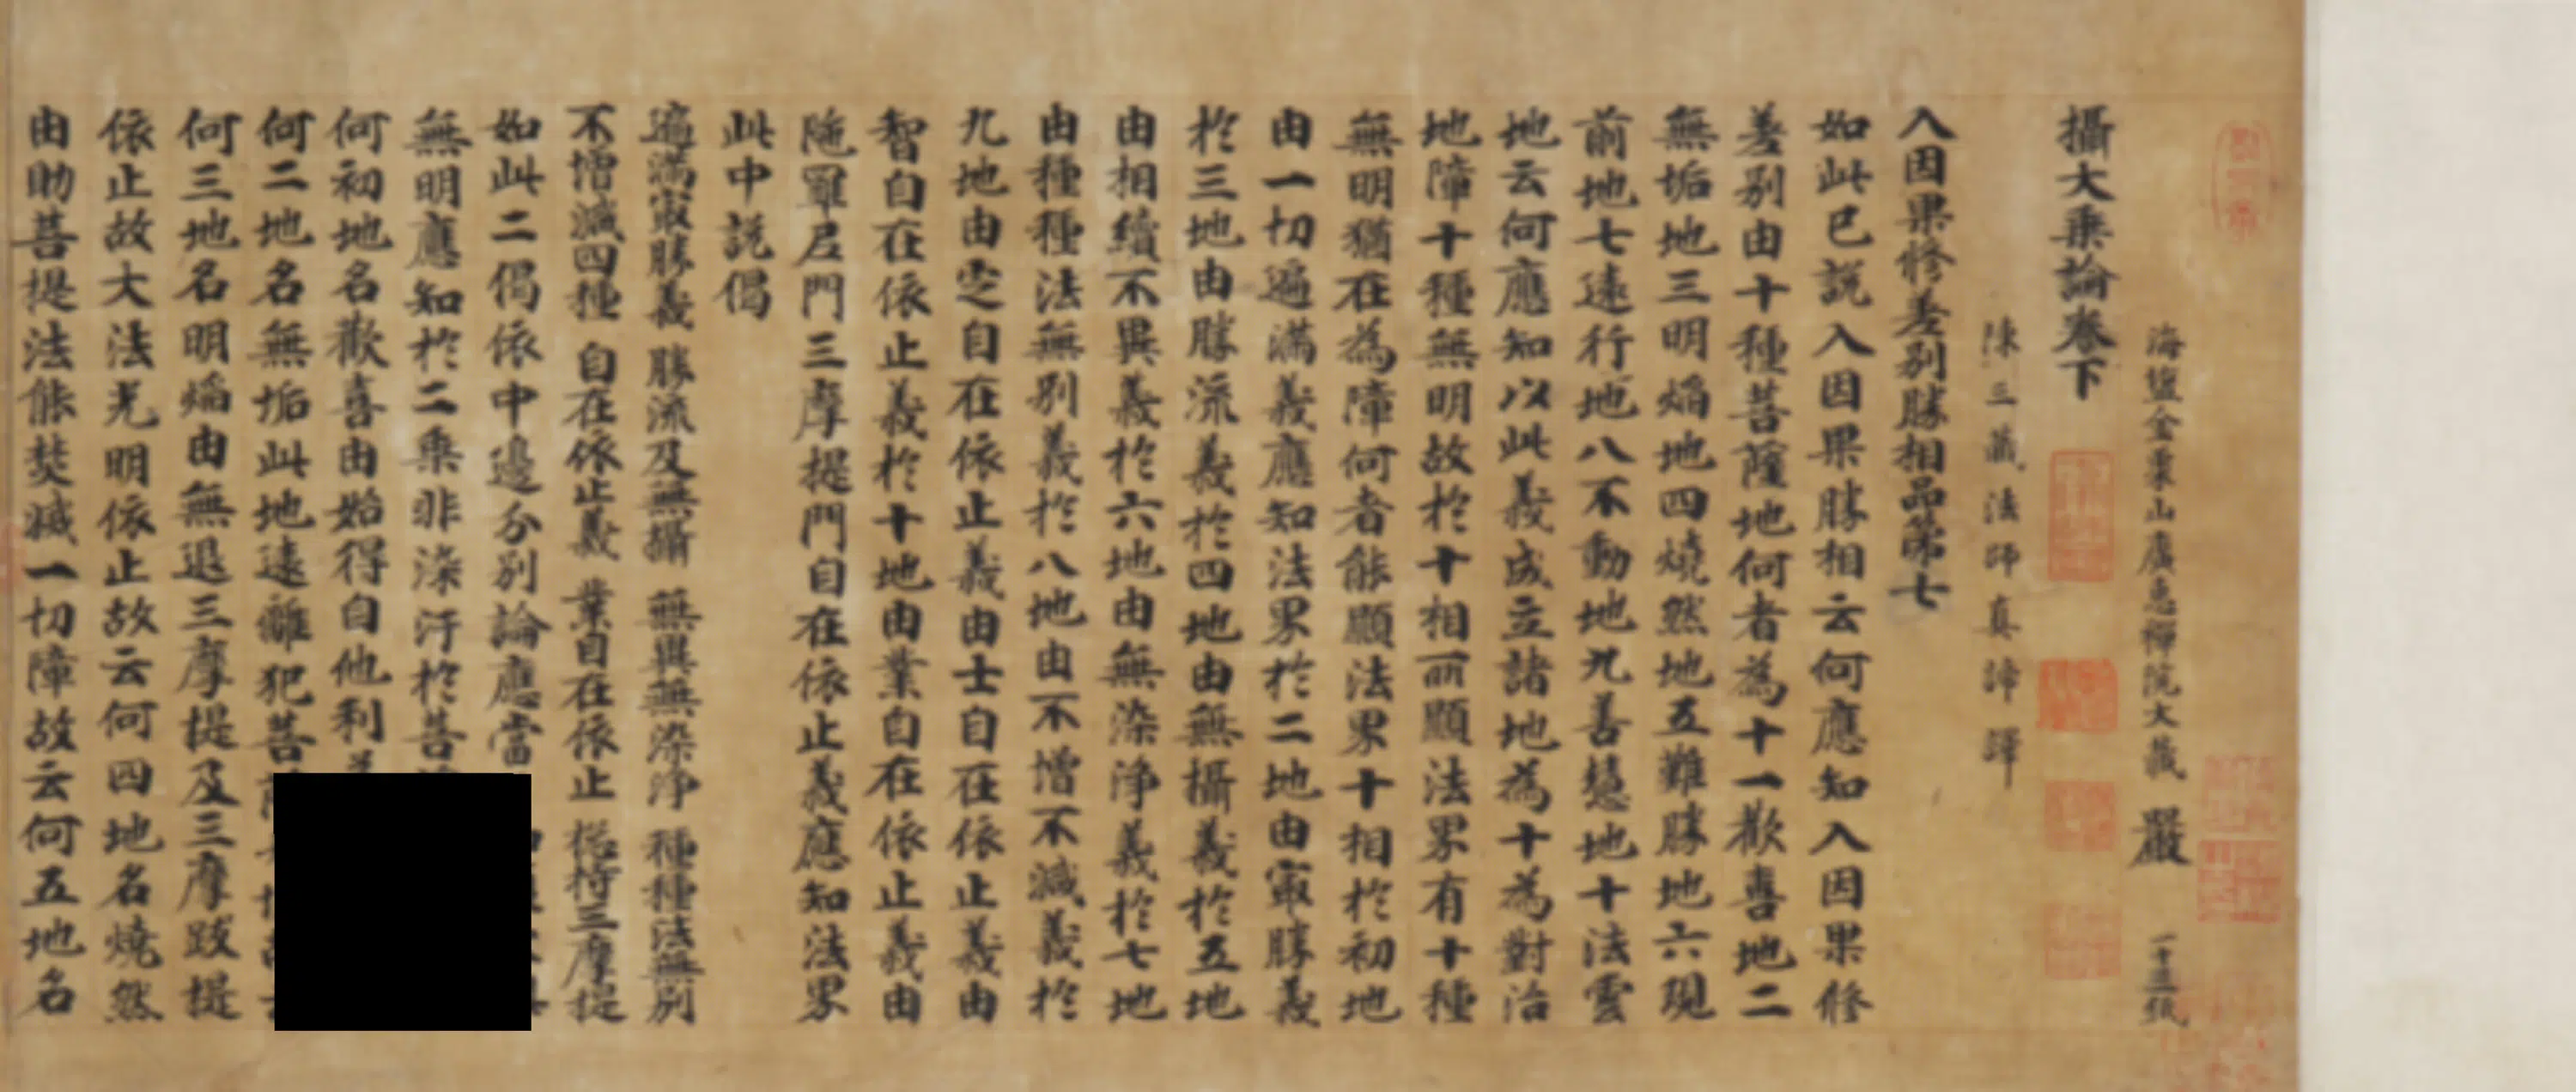 海鹽金粟山廣惠禪院大藏 嚴 一十三紙
攝大乘論卷下
陳三藏法師真諦譯
入因果修差別勝相品第七
如此已說入因果勝相云何應知入因果修
差別由十種菩薩地何者為十一歡喜地二
無垢地三明焰地四燒然地五難勝地六現
前地七遠行地八不動地九善慧地十法雲
地云何應知以此義成立諸地為十為對治
地障十種無明故於十相所顯法界有十種
無明猶在為障何者能顯法界十相於初地
由一切遍滿義應知法界於二地由㝡勝義
於三地由勝流義於四地由無攝義於五地
由相續不異義於六地由無染淨義於七地
由種種法無別義於八地由不增不減義於
九地由定自在依止義由土自在依止義由
智自在依止義於十地由業自在依止義由
陁羅尼門三摩提門自在依止義應知法界
此中說偈
遍滿㝡勝義 勝流及無攝 無異無染淨 種種法無別
不增減四種 自在依止義 業自在依止 惣持三摩提
如此二偈依中邊分別論應當
無明應知於二乘非染汙於菩
何初地名歡喜由始得自他利
何二地名無垢此地遠離犯菩
何三地名明焰由無退三摩提及三摩跋提
依止故大法光明依止故云何四地名燒然
由助菩提法能焚滅一切障故云何五地名